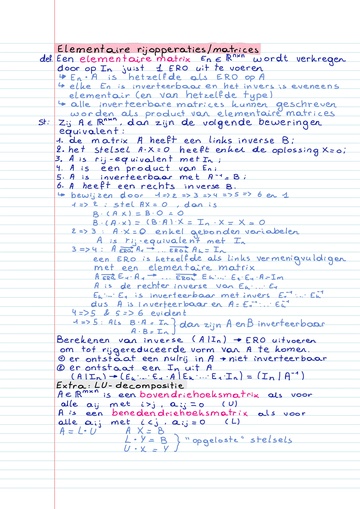 Elementaire rijopperaties/matrices
def. Een elementaire matrix En ∈ ℝⁿˣⁿ wordt verkregen
door op In juist 1 ERO uit te voeren
↳ En · A is hetzelfde als ERO op A
↳ elke En is inverteerbaar en het invers is eveneens
elementair (en van hetzelfde type)
↳ alle inverteerbare matrices kunnen geschreven
worden als product van elementaire matrices
St: Zij A ∈ ℝⁿˣⁿ, dan zijn de volgende beweringen
equivalent:
1. de matrix A heeft een links inverse B;
2. het stelsel A·X=0 heeft enkel de oplossing X=0;
3. A is rij-equivalent met In;
4. A is een product van En;
5. A is inverteerbaar met A⁻¹ = B;
6. A heeft een rechts inverse B.
↳ bewijzen door 1=>2=>3=>4=>5=>6 en 1
1=>2: stel AX=0, dan is
B·(AX) = B·0 = 0
B·(A·X) = (B·A)·X = In·X = X = 0
2=>3: A·X=0 enkel gebonden variabelen
A is rij-equivalent met In
3=>4: A ERO1 A1 → ... EROk Ak = In
een ERO is hetzelfde als links vermenigvuldigen
met een elementaire matrix
A ERO E1·A1 → ... EROk Ek·...E1·A=In
A is de rechter inverse van Ek·...·E1
Ek·...·E1 is inverteerbaar met invers E1⁻¹·...·Ek⁻¹
dus A is inverteerbaar en A = E1⁻¹·...·Ek⁻¹
4=>5 & 5=>6 evident
1=>5: Als B·A=In } dan zijn A en B inverteerbaar
A·B=In
Berekenen van inverse (A|In) → ERO uitvoeren
om tot rijgereduceerde vorm van A te komen.
① er ontstaat een nulrij in A → niet inverteerbaar
② er ontstaat een In uit A
(A|In) → (Ek·...·E1·A|Ek·...·E1·In) = (In|A⁻¹)
Extra: LU-decompositie
A ∈ ℝⁿˣⁿ is een bovendriehoeksmatrix als voor
alle aij met i>j, aij=0 (U)
A is een benedendriehoeksmatrix als voor
alle aij met i<j, aij=0 (L)
A = L·U A X = B
L·Y = B } "opgeloste" stelsels
U·X = Y